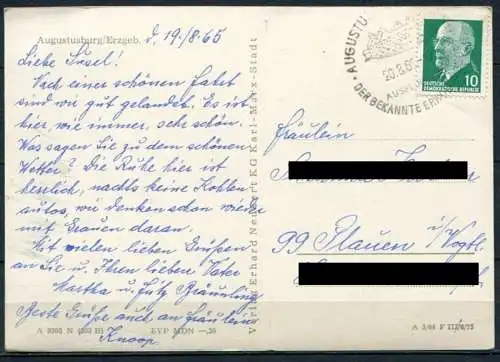 Augustusburg/Erzgeb. d. 19./8.65
Liebe Insel!
Nach einer schönen Fahrt
sind wir gut gelandet. Es ist
hier, wie immer, sehr schön.
Was sagen Sie zu dem schönen
Wetter? Die Ruhe hier ist
herrlich, nachts keine Kohlen
autos, wir denken schon wieder
mit Grauen daran.
Mit vielen lieben Grüßen
an Sie u. Ihren lieben Vater
Martha u. Fritz Bräunling
Beste Grüße auch an Fräulein
Knoop
A 9303 N EVP MDN —,20
Verlag Erhard Neubert KG Karl-Marx-Stadt
AUGUSTU
20.8.6
AUSFLU
DER BEKANNTE ERH
DEUTSCHE
DEMOKRATISCHE REPUBLIK
10
Fräulein
99 Plauen i/Vogtl.
A 3/64 F